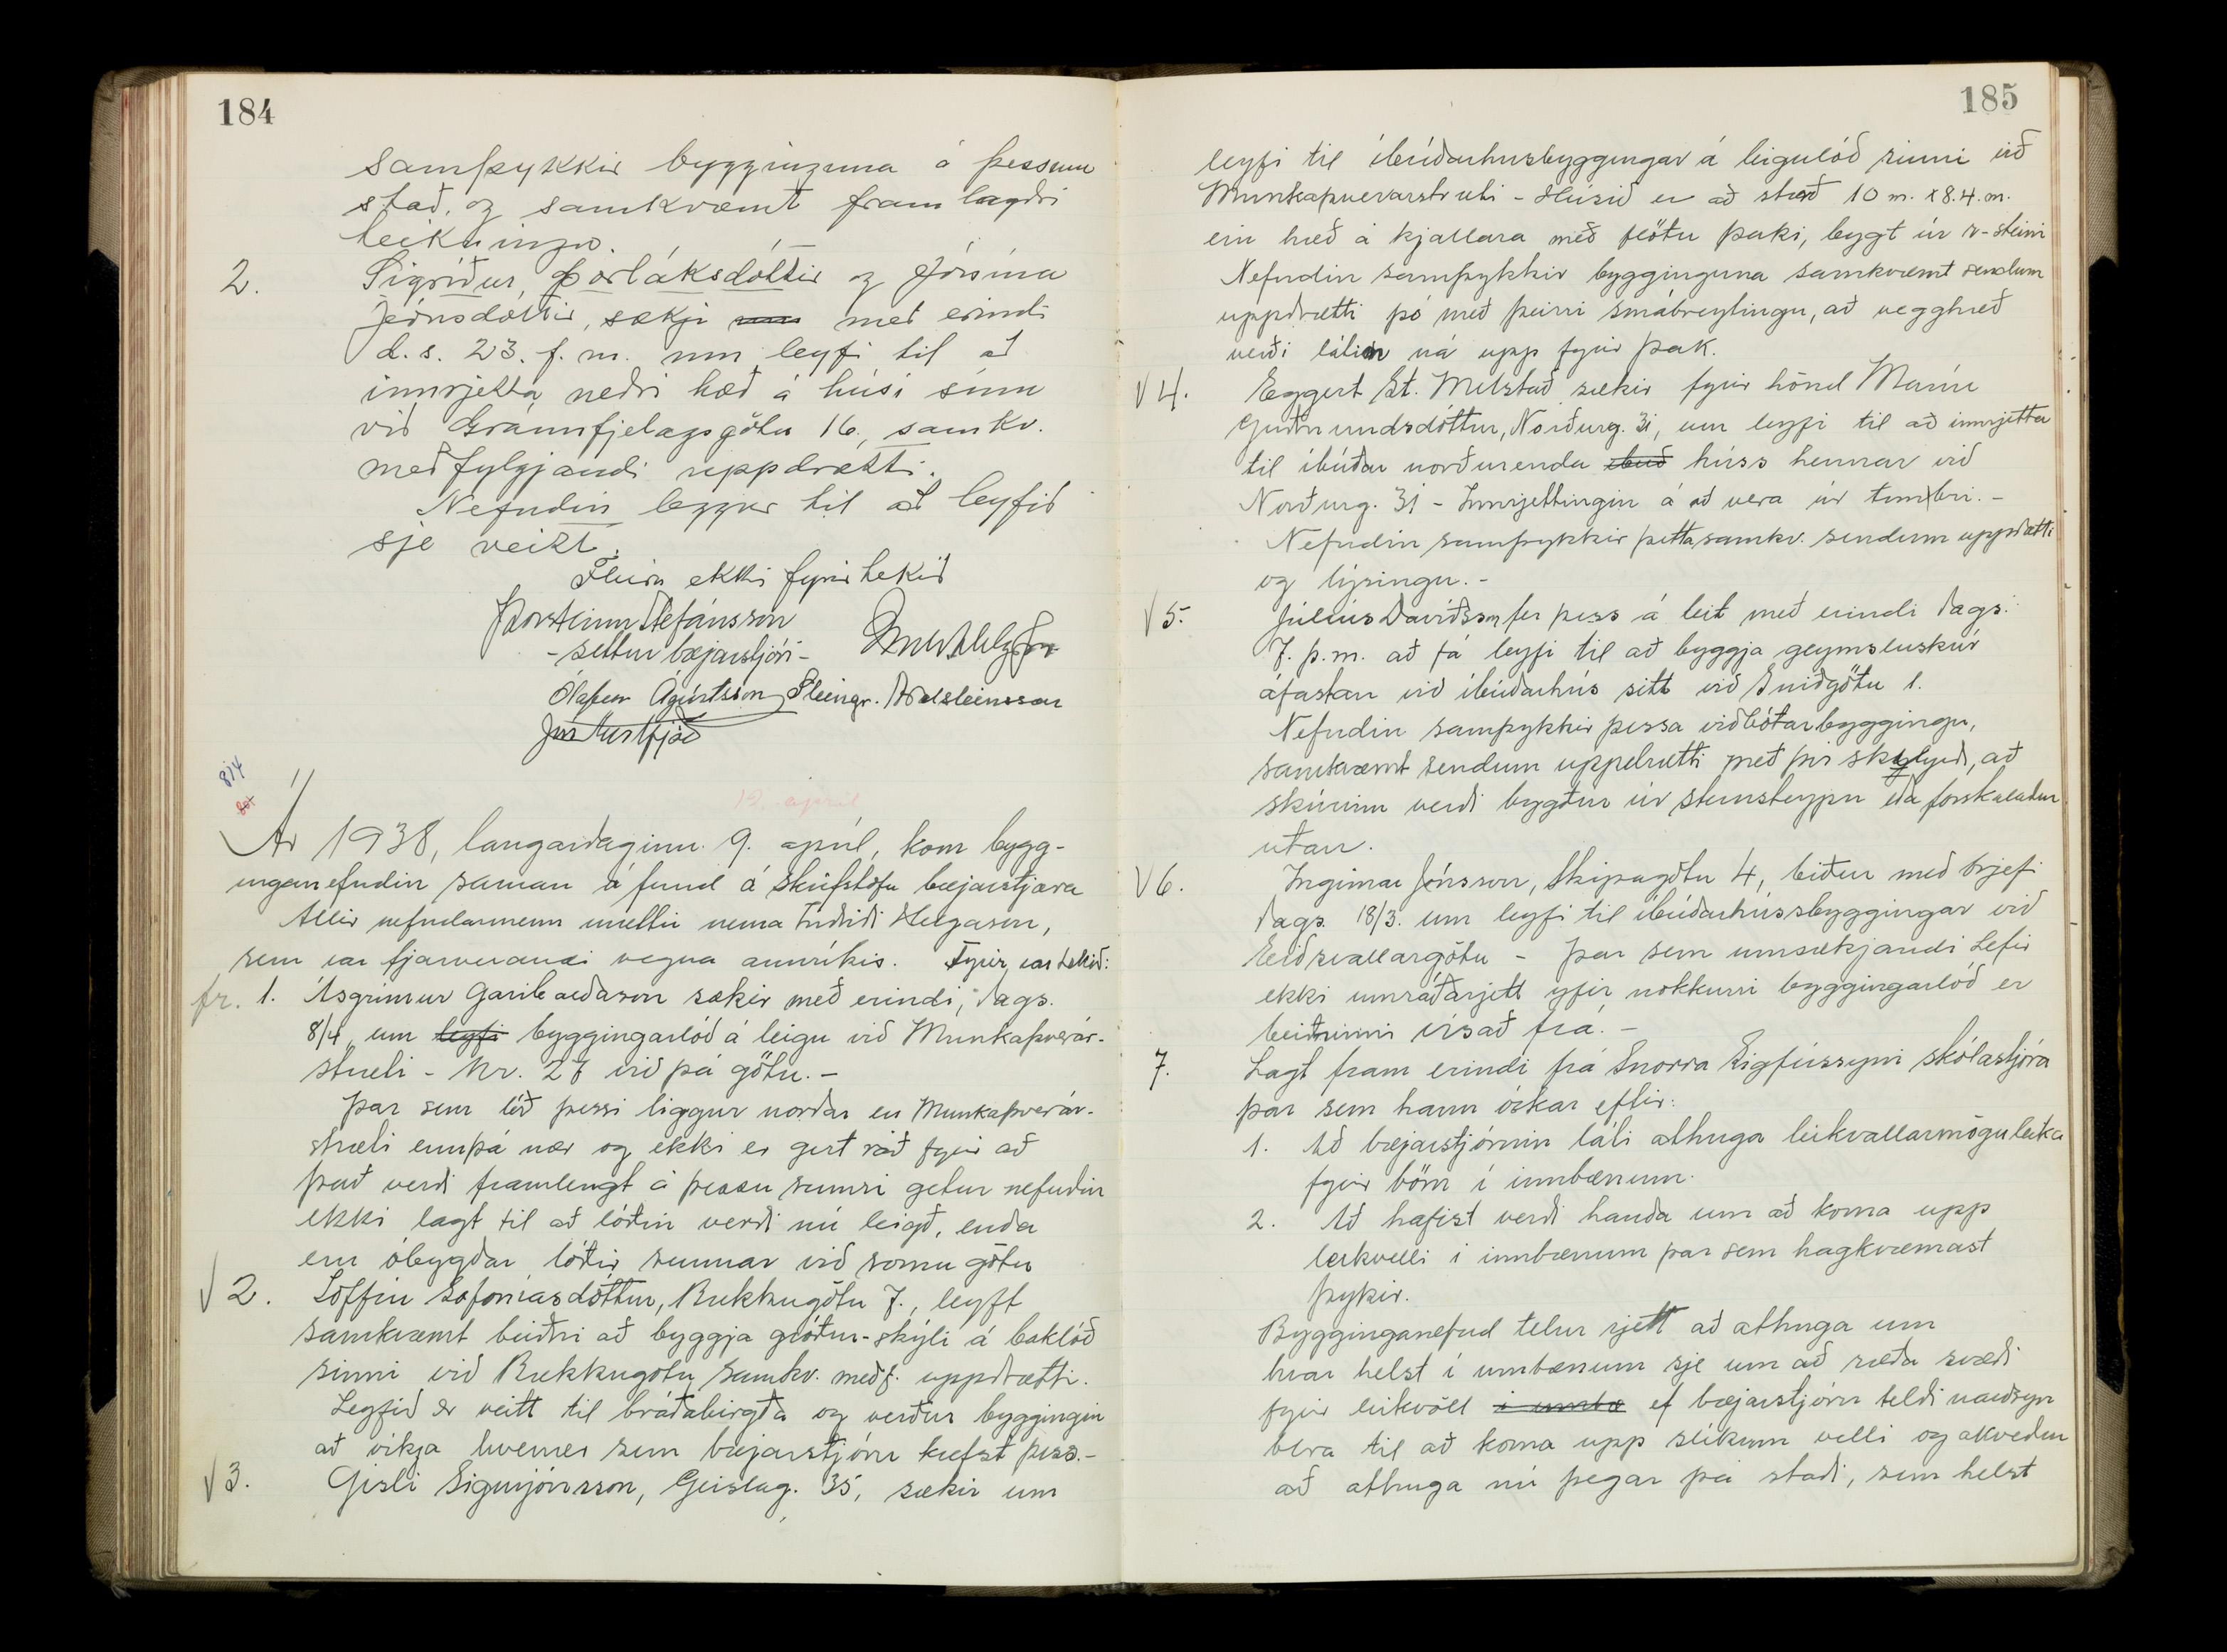 184
samþykkir bygginguna á þessum
stað, og samkvæmt fram lagðri
teikningu.
2. Sigríður Þorláksdóttir og Jónína
Jónsdóttir, sækja með erindi
d. s. 23. f. m. um leyfi til að
innrjetta neðri hæð á húsi sínu
við Gránufjelagsgötu 16, samkv.
meðfylgjandi uppdrætti.
Nefndin leggur til að leyfið
sje veitt.
Fleira ekki fyrirtekið
Þorsteinn Stefánsson
- settur bæjarstjóri -
Ólafur Ágústsson Steingr. Aðalsteinsson
8/4
12. apríl
Ár 1938, laugardaginn 9. apríl, kom bygg-
inganefndin saman á fund á skrifstofu bæjarstjóra
Allir nefndarmenn mættu nema Helgason,
sem var fjarverandi vegna annríkis. Fyrir var tekið:
fr. 1. Ásgrímur Garibaldason sækir með erindi, dags.
8/4 um leyfi byggingarlóð á leigu við Munkaþverár-
stræti - Nr. 27 við þá götu. -
Þar sem lóð þessi liggur norðar en Munkaþverár-
stræti ennþá nær og ekki er gert ráð fyrir að
það verði framlengt á þessu sumri getur nefndin
ekki lagt til að lóðin verði nú leigð, enda
eru óbygðar lóðir sunnar við sömu götu
√ 2. Soffíu Sofoníasdóttur, Brekkugötu 7, leyft
samkvæmt beiðni að byggja gróður-skýli á baklóð
sinni við Brekkugötu samkv. meðf. uppdrætti.
Leyfið er veitt til bráðabirgða og verður byggingin
að víkja hvenær sem bæjarstjórn krefst þess. -
√ 3. Gísli Sigurjónsson, Geislag. 35, sækir um
185
leyfi til íbúðarhúsbyggingar á leigulóð sinni við
Munkaþverárstræti - Húsið er að stærð 10 m. x 8.4. m.
ein hæð á kjallara með flötu þaki, bygt úr r-steini
Nefndin samþykkir bygginguna samkvæmt sendum
uppdrætti þó með þeirri smábreytingu, að vegghæð
verði látin ná upp fyrir þak.
√ 4. Eggert St. Melstað sækir fyrir hönd Maríu
Guðmundsdóttur, Norðurg. 31, um leyfi til að innrjetta
til íbúðar norðurenda íbúð húss hennar við
Norðurg. 31 - Innrjettingin á að vera úr timbri. -
Nefndin samþykkir þetta samkv. sendum uppdrætti
og lýsingu. -
√ 5. Júlíus Davíðsson fer þess á leit með erindi dags.
7. þ.m. að fá leyfi til að byggja geymsluskúr
áfastan við íbúðarhús sitt við Sniðgötu 1.
Nefndin samþykkir þessa viðbótarbyggingu,
samkvæmt sendum uppdrætti með því skilyrði, að
skúrinn verði bygður úr steinsteypu eða forskalaður
utan.
√ 6. Ingimar Jónsson, Skipagötu 4, biður með brjefi
dags. 18/3. um leyfi til íbúðarhússbyggingar við
Eiðsvallargötu - Þar sem umsækjandi hefir
ekki umráðarjett yfir nokkurri byggingarlóð er
beiðninni vísað frá. -
7. Lagt fram erindi frá Snorra Sigfússyni skólastjóra
þar sem hann óskar eftir:
1. Að bæjarstjórnin láti athuga leikvallarmöguleika
fyrir börn í innbænum.
2. Að hafist verði handa um að koma upp
leikvelli í innbænum þar sem hagkvæmast
þykir.
Bygginganefnd telur rjett að athuga um
hvar helst í innbænum sje um að ræða svæði
fyrir leikvöll í innbæ ef bæjarstjórn teldi nauðsyn
vera til að koma upp slíkum velli og ákveður
að athuga nú þegar þá staði, sem helst